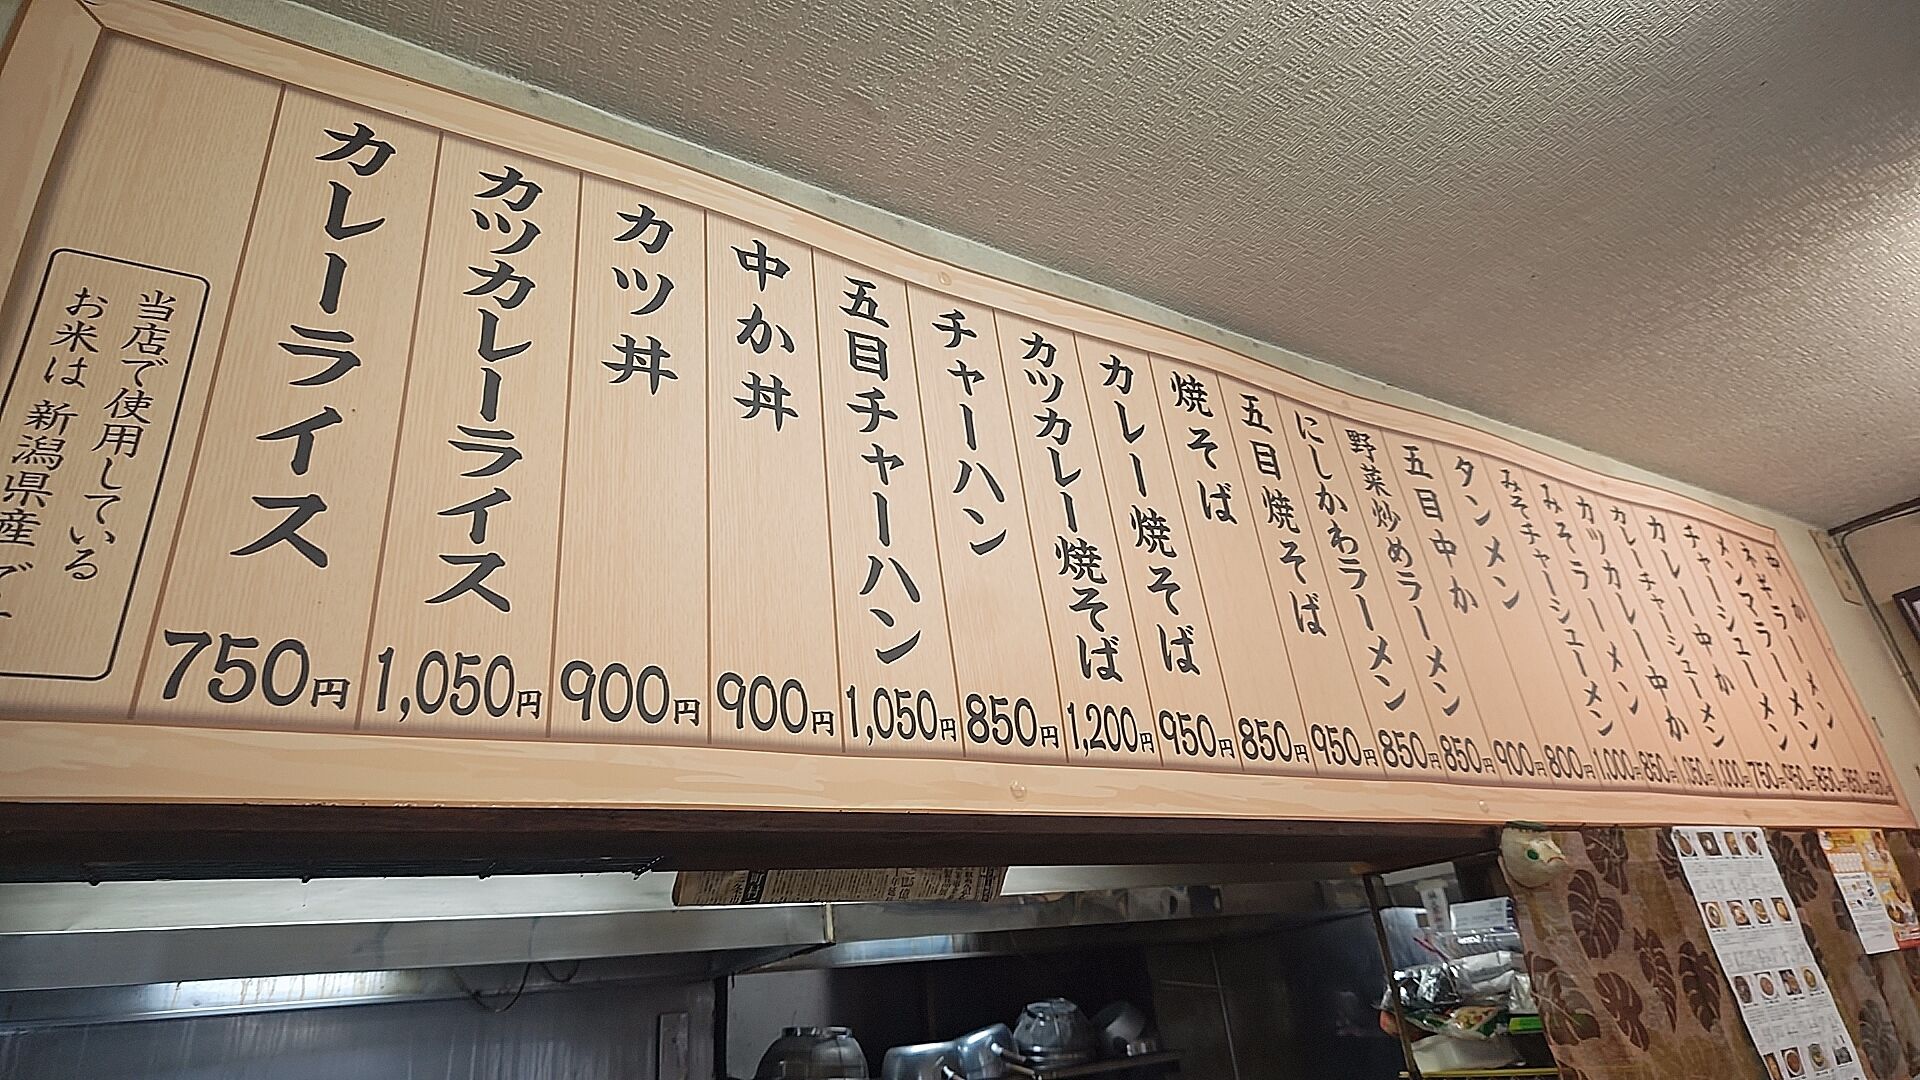 メンマラーメン
850円
チャーシューメン
950円
カレー中か
750円
カレーチャーシューメン
1,000円
カツカレー中か
1,050円
みそラーメン
850円
みそチャーシューメン
1,000円
タンメン
800円
五目中か
900円
野菜炒めラーメン
850円
にしかわラーメン
850円
五目焼そば
950円
焼そば
850円
カレー焼そば
950円
カツカレー焼そば
1,200円
チャーハン
850円
五目チャーハン
1,050円
中か丼
900円
カツ丼
900円
カツカレーライス
1,050円
カレーライス
750円
当店で使用している
お米は 新潟県産 で